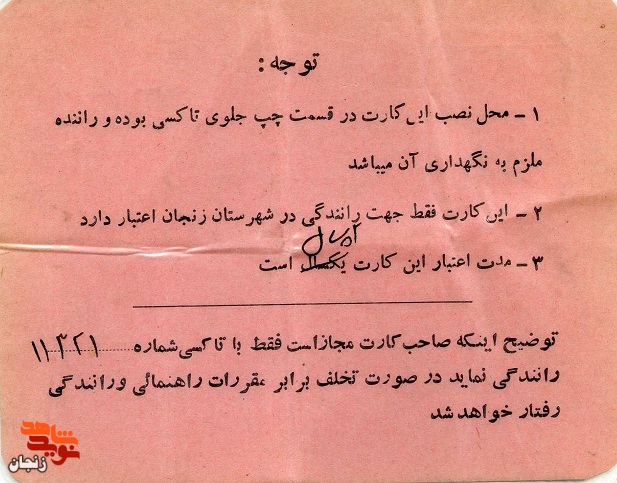 توجه :
۱ - محل نصب این کارت در قسمت چپ جلوی تاکسی بوده و راننده
ملزم به نگهداری آن میباشد
۲ - این کارت فقط جهت رانندگی در شهرستان زنجان اعتبار دارد
۳ - مدت اعتبار این کارت یکسال است
توضیح اینکه صاحب کارت مجاز است فقط با تاکسی شماره ۱۱۳۲۱
رانندگی نماید در صورت تخلف برابر مقررات راهنمائی ورانندگی
رفتار خواهد شد
نوید شاهد
زنجان